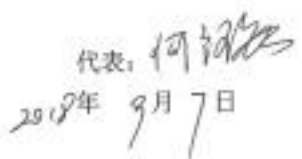 代表：何
2018年 9月 7日